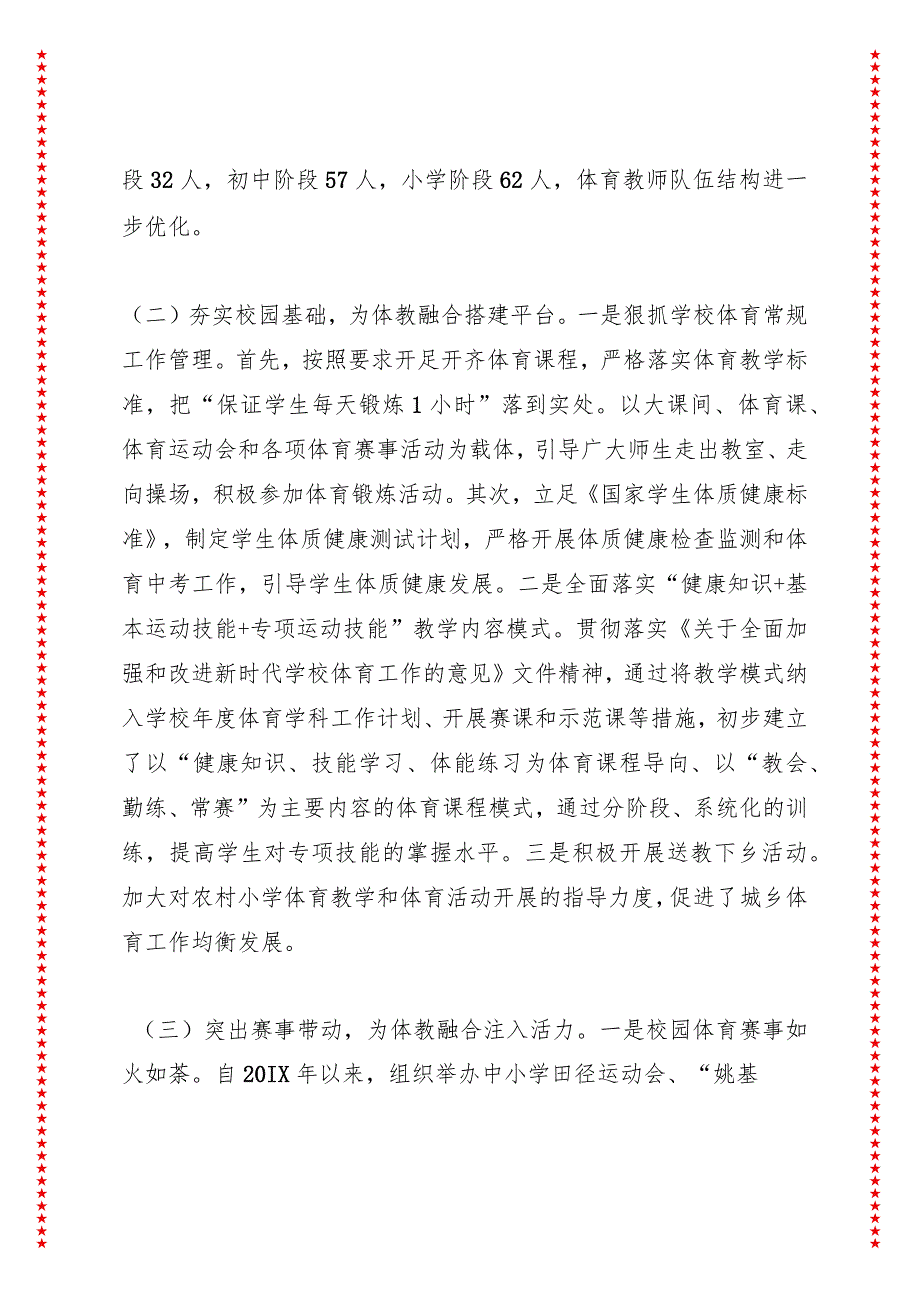 段32人，初中阶段57人，小学阶段62人，体育教师队伍结构进一
步优化。
（二）夯实校园基础，为体教融合搭建平台。一是狠抓学校体育常规
工作管理。首先，按照要求开足开齐体育课程，严格落实体育教学标
准，把“保证学生每天锻炼1小时”落到实处。以大课间、体育课、
体育运动会和各项体育赛事活动为载体，引导广大师生走出教室、走
向操场，积极参加体育锻炼活动。其次，立足《国家学生体质健康标
准》，制定学生体质健康测试计划，严格开展体质健康检查监测和体
育中考工作，引导学生体质健康发展。二是全面落实“健康知识+基
本运动技能+专项运动技能”教学内容模式。贯彻落实《关于全面加
强和改进新时代学校体育工作的意见》文件精神，通过将教学模式纳
入学校年度体育学科工作计划、开展赛课和示范课等措施，初步建立
了以“健康知识、技能学习、体能练习为体育课程导向、以“教会、
勤练、常赛”为主要内容的体育课程模式，通过分阶段、系统化的训
练，提高学生对专项技能的掌握水平。三是积极开展送教下乡活动。
加大对农村小学体育教学和体育活动开展的指导力度，促进了城乡体
育工作均衡发展。
（三）突出赛事带动，为体教融合注入活力。一是校园体育赛事如
火如荼。自20IX年以来，组织举办中小学田径运动会、“姚基